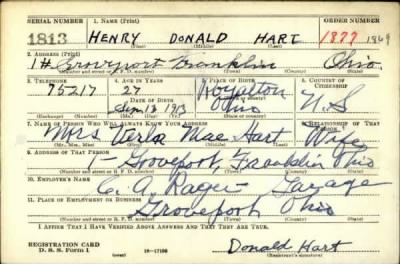 SERIAL NUMBER 1. NAME (Print) ORDER NUMBER
1813 HENRY DONALD HART 1877 1869
(First) (Middle) (Last)
2. ADDRESS (Print)
1# Groveport Franklin Ohio
(Number and street or R. F. D. number) (Town) (County) (State)
3. TELEPHONE 4. AGE IN YEARS 5. PLACE OF BIRTH 6. COUNTRY OF CITIZENSHIP
75217 27 Royalton
DATE OF BIRTH Ohio U.S
13 1913
(Exchange) (Number) (Mo.) (Day) (Yr.) (State or country)
7. NAME OF PERSON WHO WILL ALWAYS KNOW YOUR ADDRESS 8. RELATIONSHIP OF THAT PERSON
Mrs Verla Mae Hart Wife
(Mr., Mrs., Miss) (First) (Middle) (Last)
9. ADDRESS OF THAT PERSON
1- Groveport, Franklin Ohio
(Number and street or R. F. D. number) (Town) (County) (State)
10. EMPLOYER'S NAME
C. A. Rager Garage
11. PLACE OF EMPLOYMENT OR BUSINESS
Groveport Ohio
(Number and street or R. F. D. number) (Town) (County) (State)
I AFFIRM THAT I HAVE VERIFIED ABOVE ANSWERS AND THAT THEY ARE TRUE.
REGISTRATION CARD
D. S. S. Form 1 16-17105 Donald Hart
(Registrant's signature)